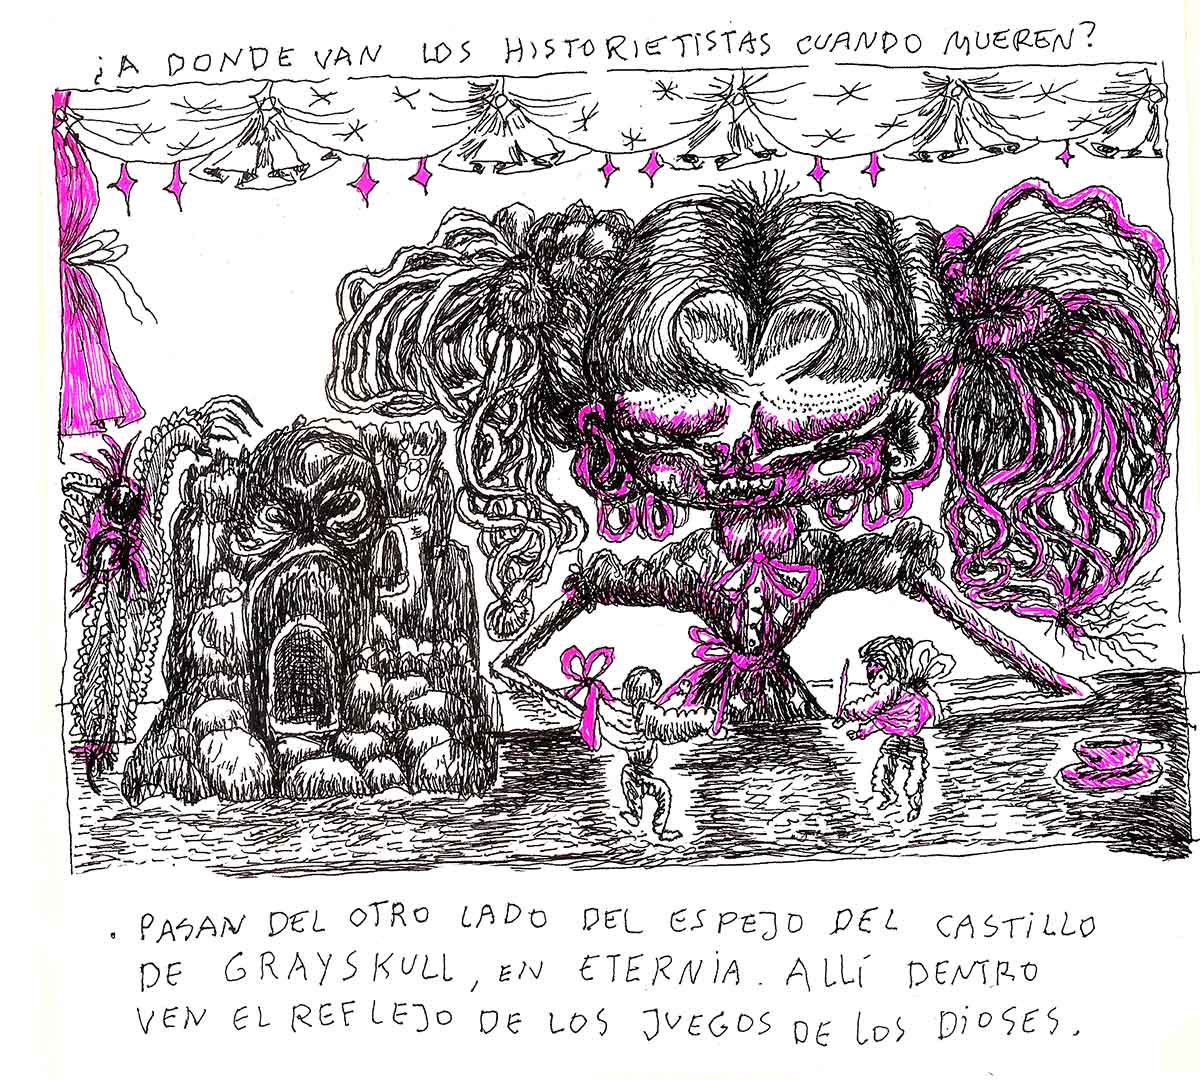 ¿A DONDE VAN LOS HISTORIETISTAS CUANDO MUEREN?
. PASAN DEL OTRO LADO DEL ESPEJO DEL CASTILLO
DE GRAYSKULL, EN ETERNIA. ALLÍ DENTRO
VEN EL REFLEJO DE LOS JUEGOS DE LOS DIOSES.